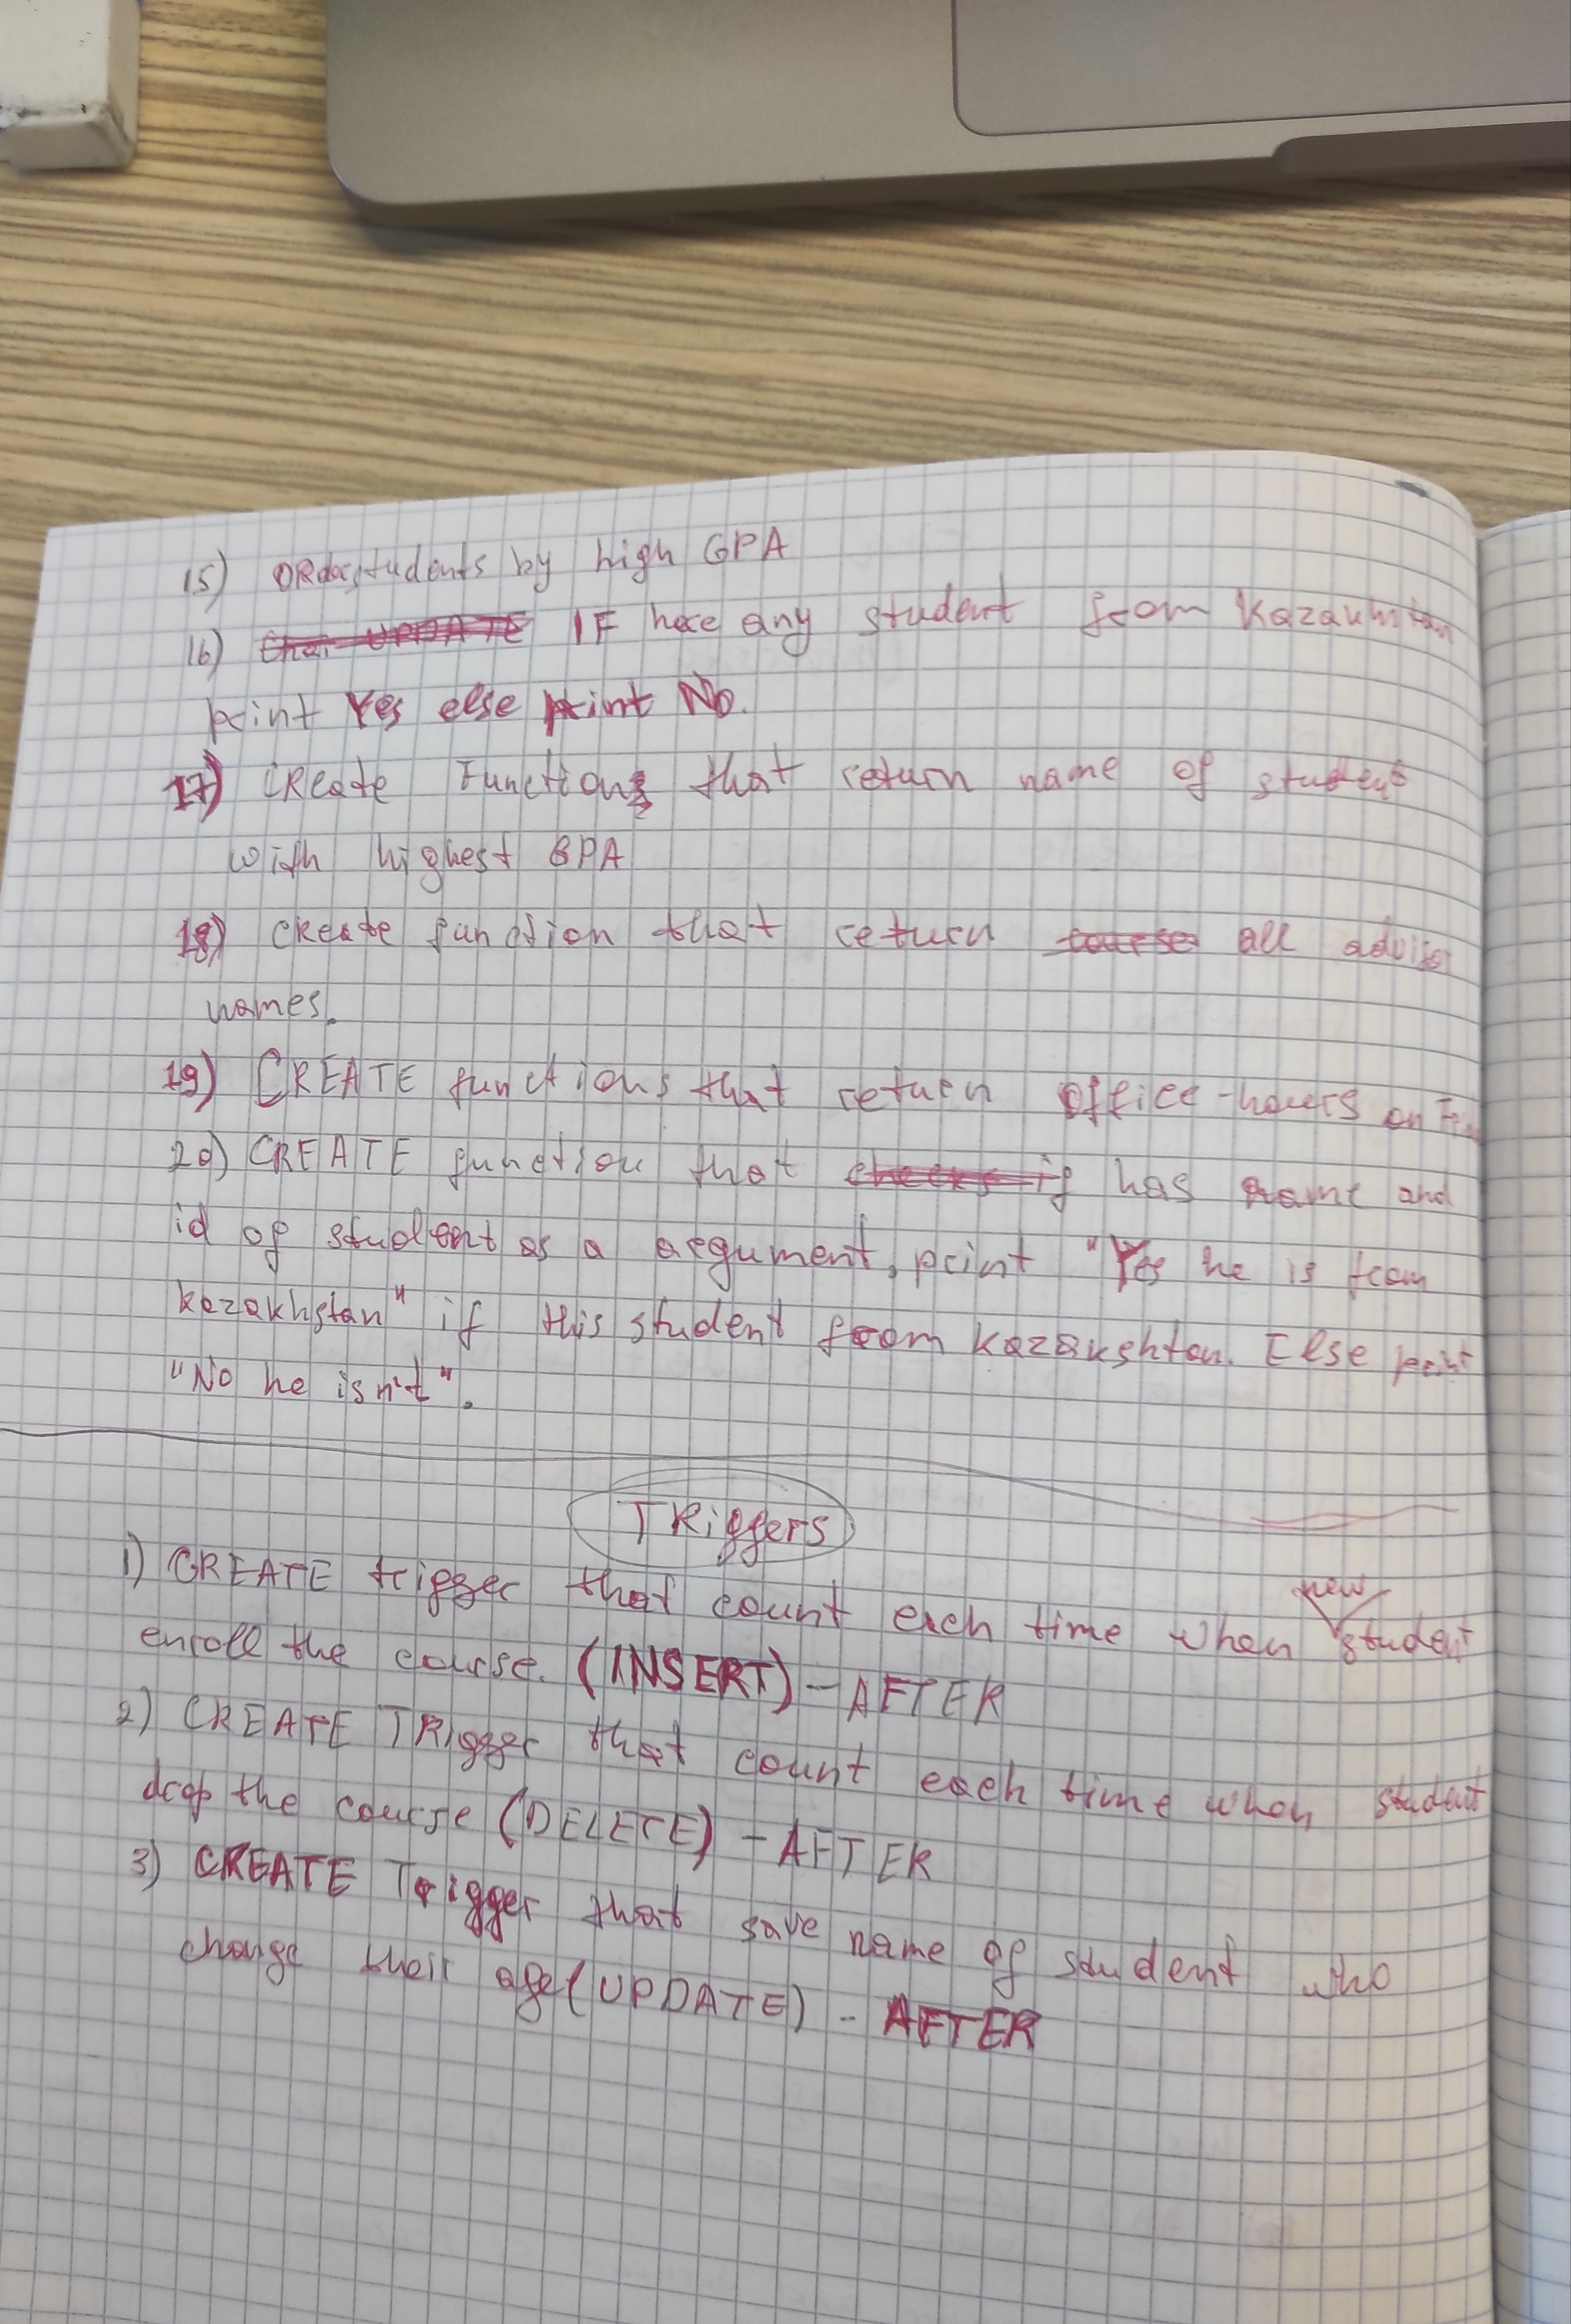 15) ORder students by high GPA
16) IF here any student from Kazakhstan
print Yes else print No.
17) CReate Function that return name of student
with highest GPA
18) create function that return course all advisor
names.
19) CREATE functions that return office-hours on
20) CREATE function that checks if has name and
id of student as a argument, print "Yes he is from
kazakhstan" if this student from kazakshtan. Else print
"No he isn't".
TRiggers
1) CREATE trigger that count each time when new student
enroll the course. (INSERT) - AFTER
2) CREATE TRigger that count each time when student
drop the course (DELETE) - AFTER
3) CREATE Trigger that save name of student who
change their age (UPDATE) - AFTER